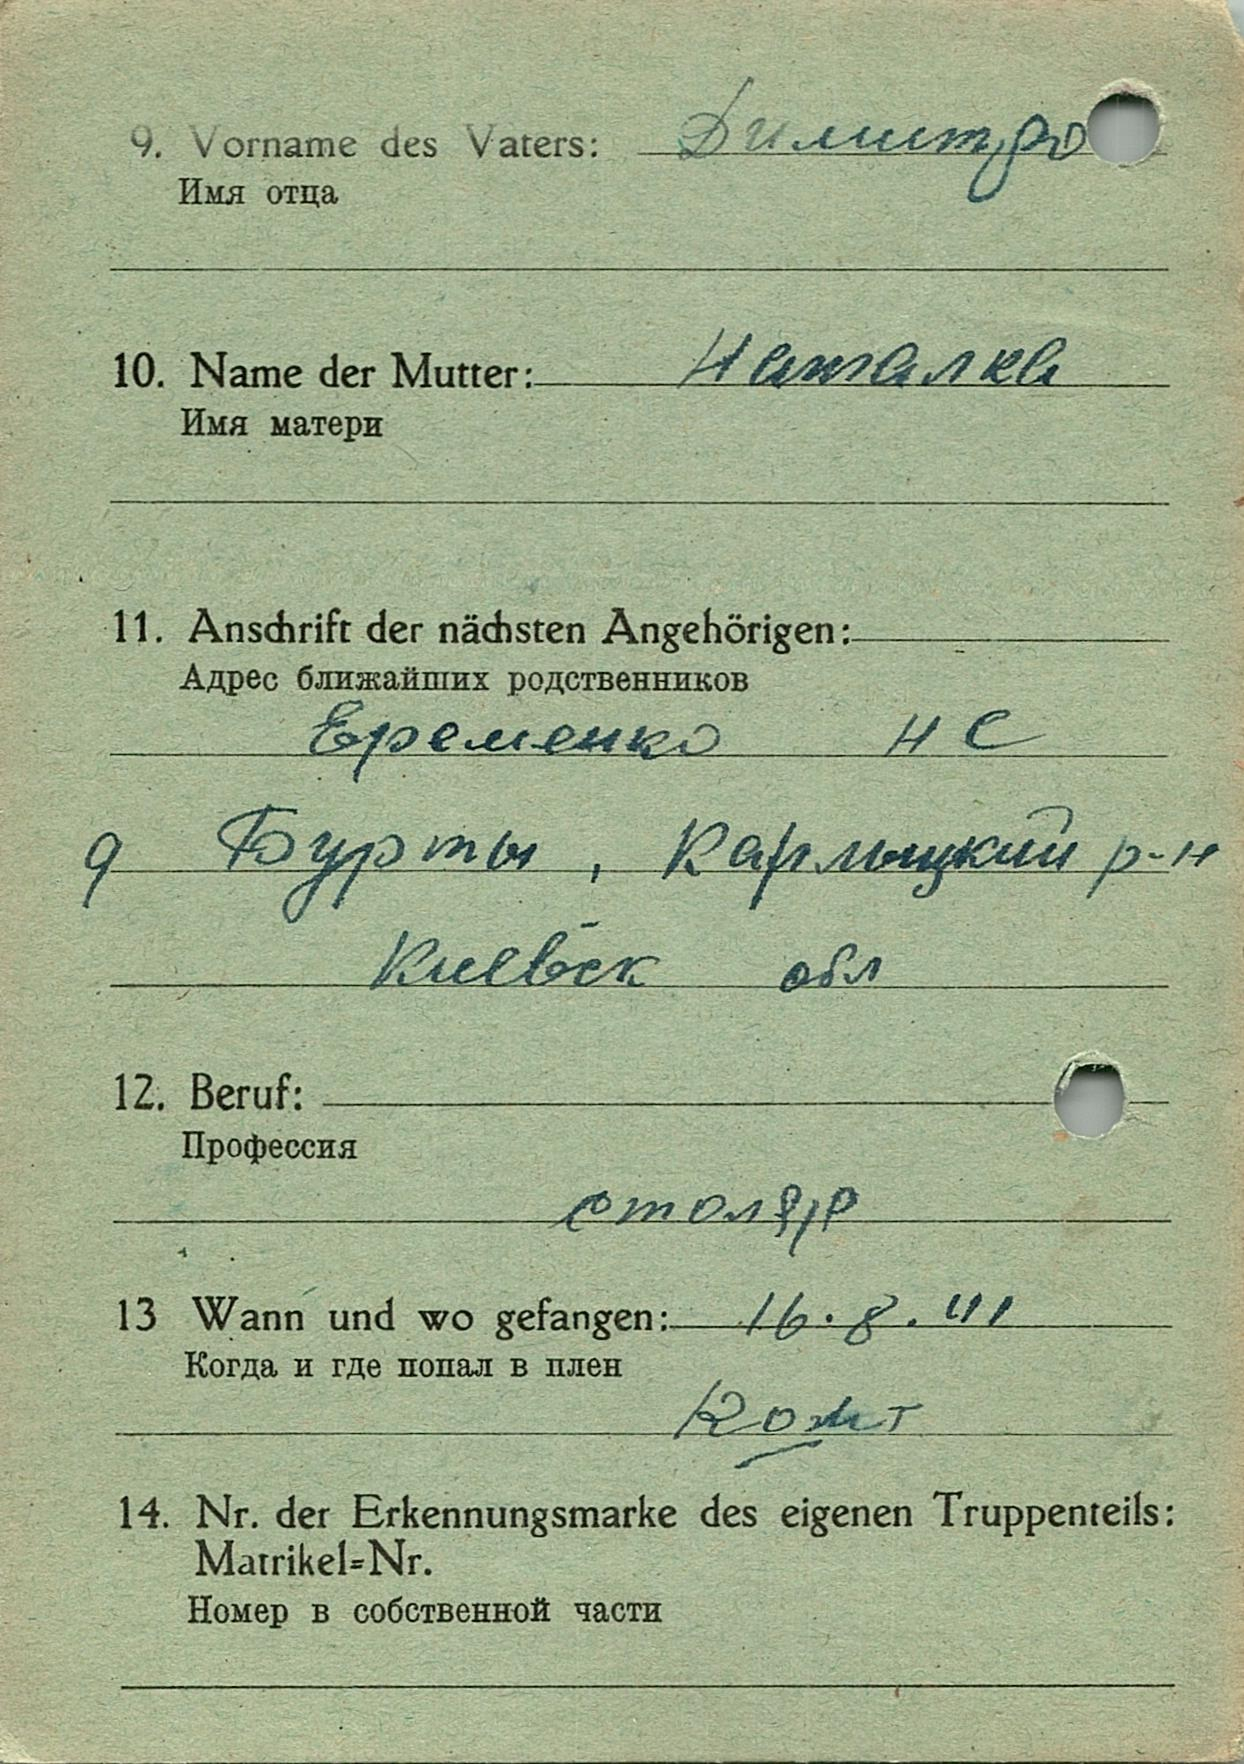 9. Vorname des Vaters: Димитро
Имя отца
10. Name der Mutter: Наталка
Имя матери
11. Anschrift der nächsten Angehörigen:
Адрес ближайших родственников
Еременко Н С
д Бурты,  р-н
Киевск обл
12. Beruf:
Профессия
столяр
13 Wann und wo gefangen: 16.8.41
Когда и где попал в плен
14. Nr. der Erkennungsmarke des eigenen Truppenteils:
Matrikel=Nr.
Номер в собственной части